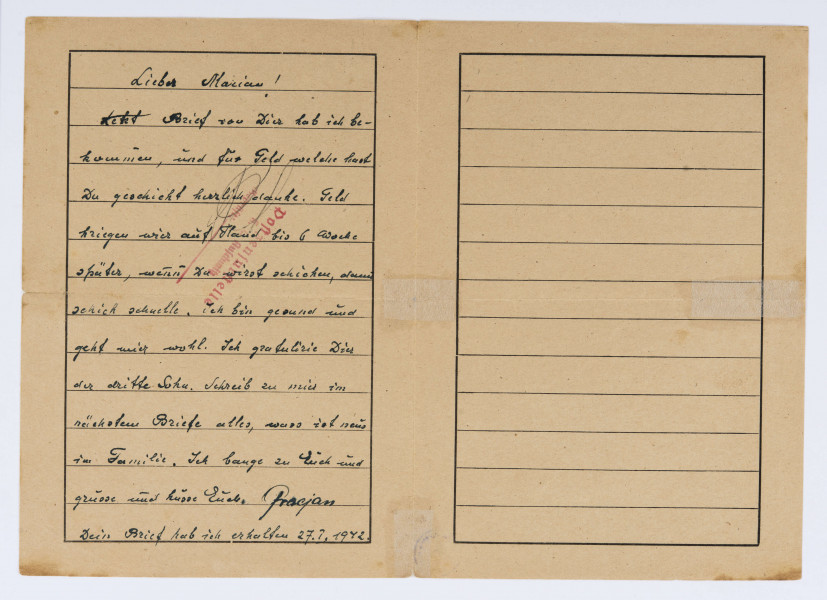 Lieber Marian!
Brief von Dir hab ich be-
kommen, und für Geld welche hast
Du geschickt herzlich danke. Geld
kriegen wier auf Hand bis 6 Woche
später, wenn Du wirst schicken, dann
schick schnelle. ich bin gesund und
geht mier wohl. Ich gratulirie Dier
der dritte Sohn. Schreib zu mier im
nächstem Briefe alles, wass ist neus
im Familie. Ich bange zu Euch und
grüsse und küsse Euch.
Dein Brief hab ich erhalten 27.I.1942.
Postzensurstelle